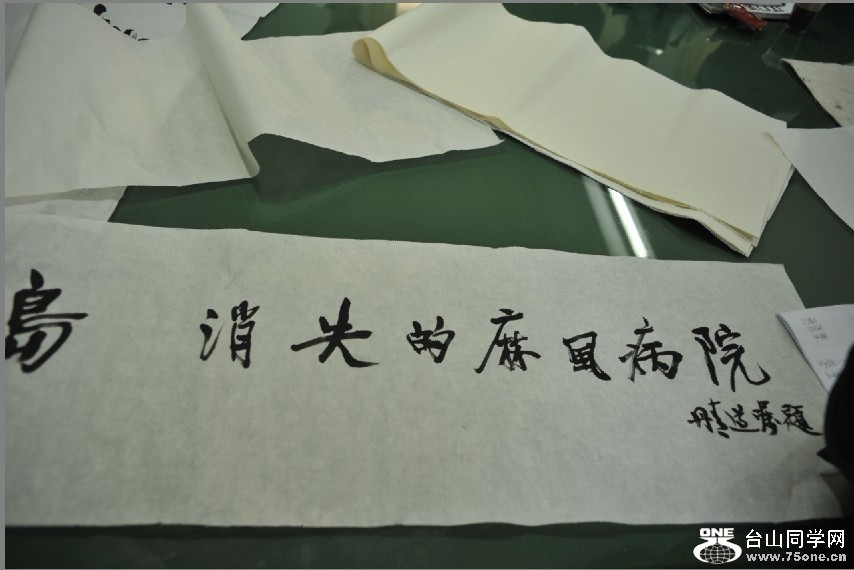 岛 消失的麻风病院
ONE
台山同学网
www.75one.cn